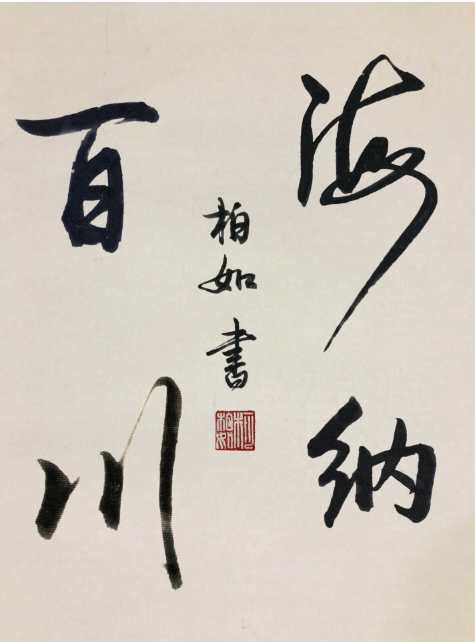 海纳
百川
柏如書